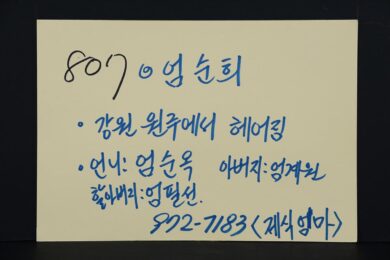 807 ◎ 엄순희
• 강원 원주에서 헤어짐
• 언니: 엄순옥 아버지: 엄계원
할아버리: 엄필선.
872-7183 <제식엄마>